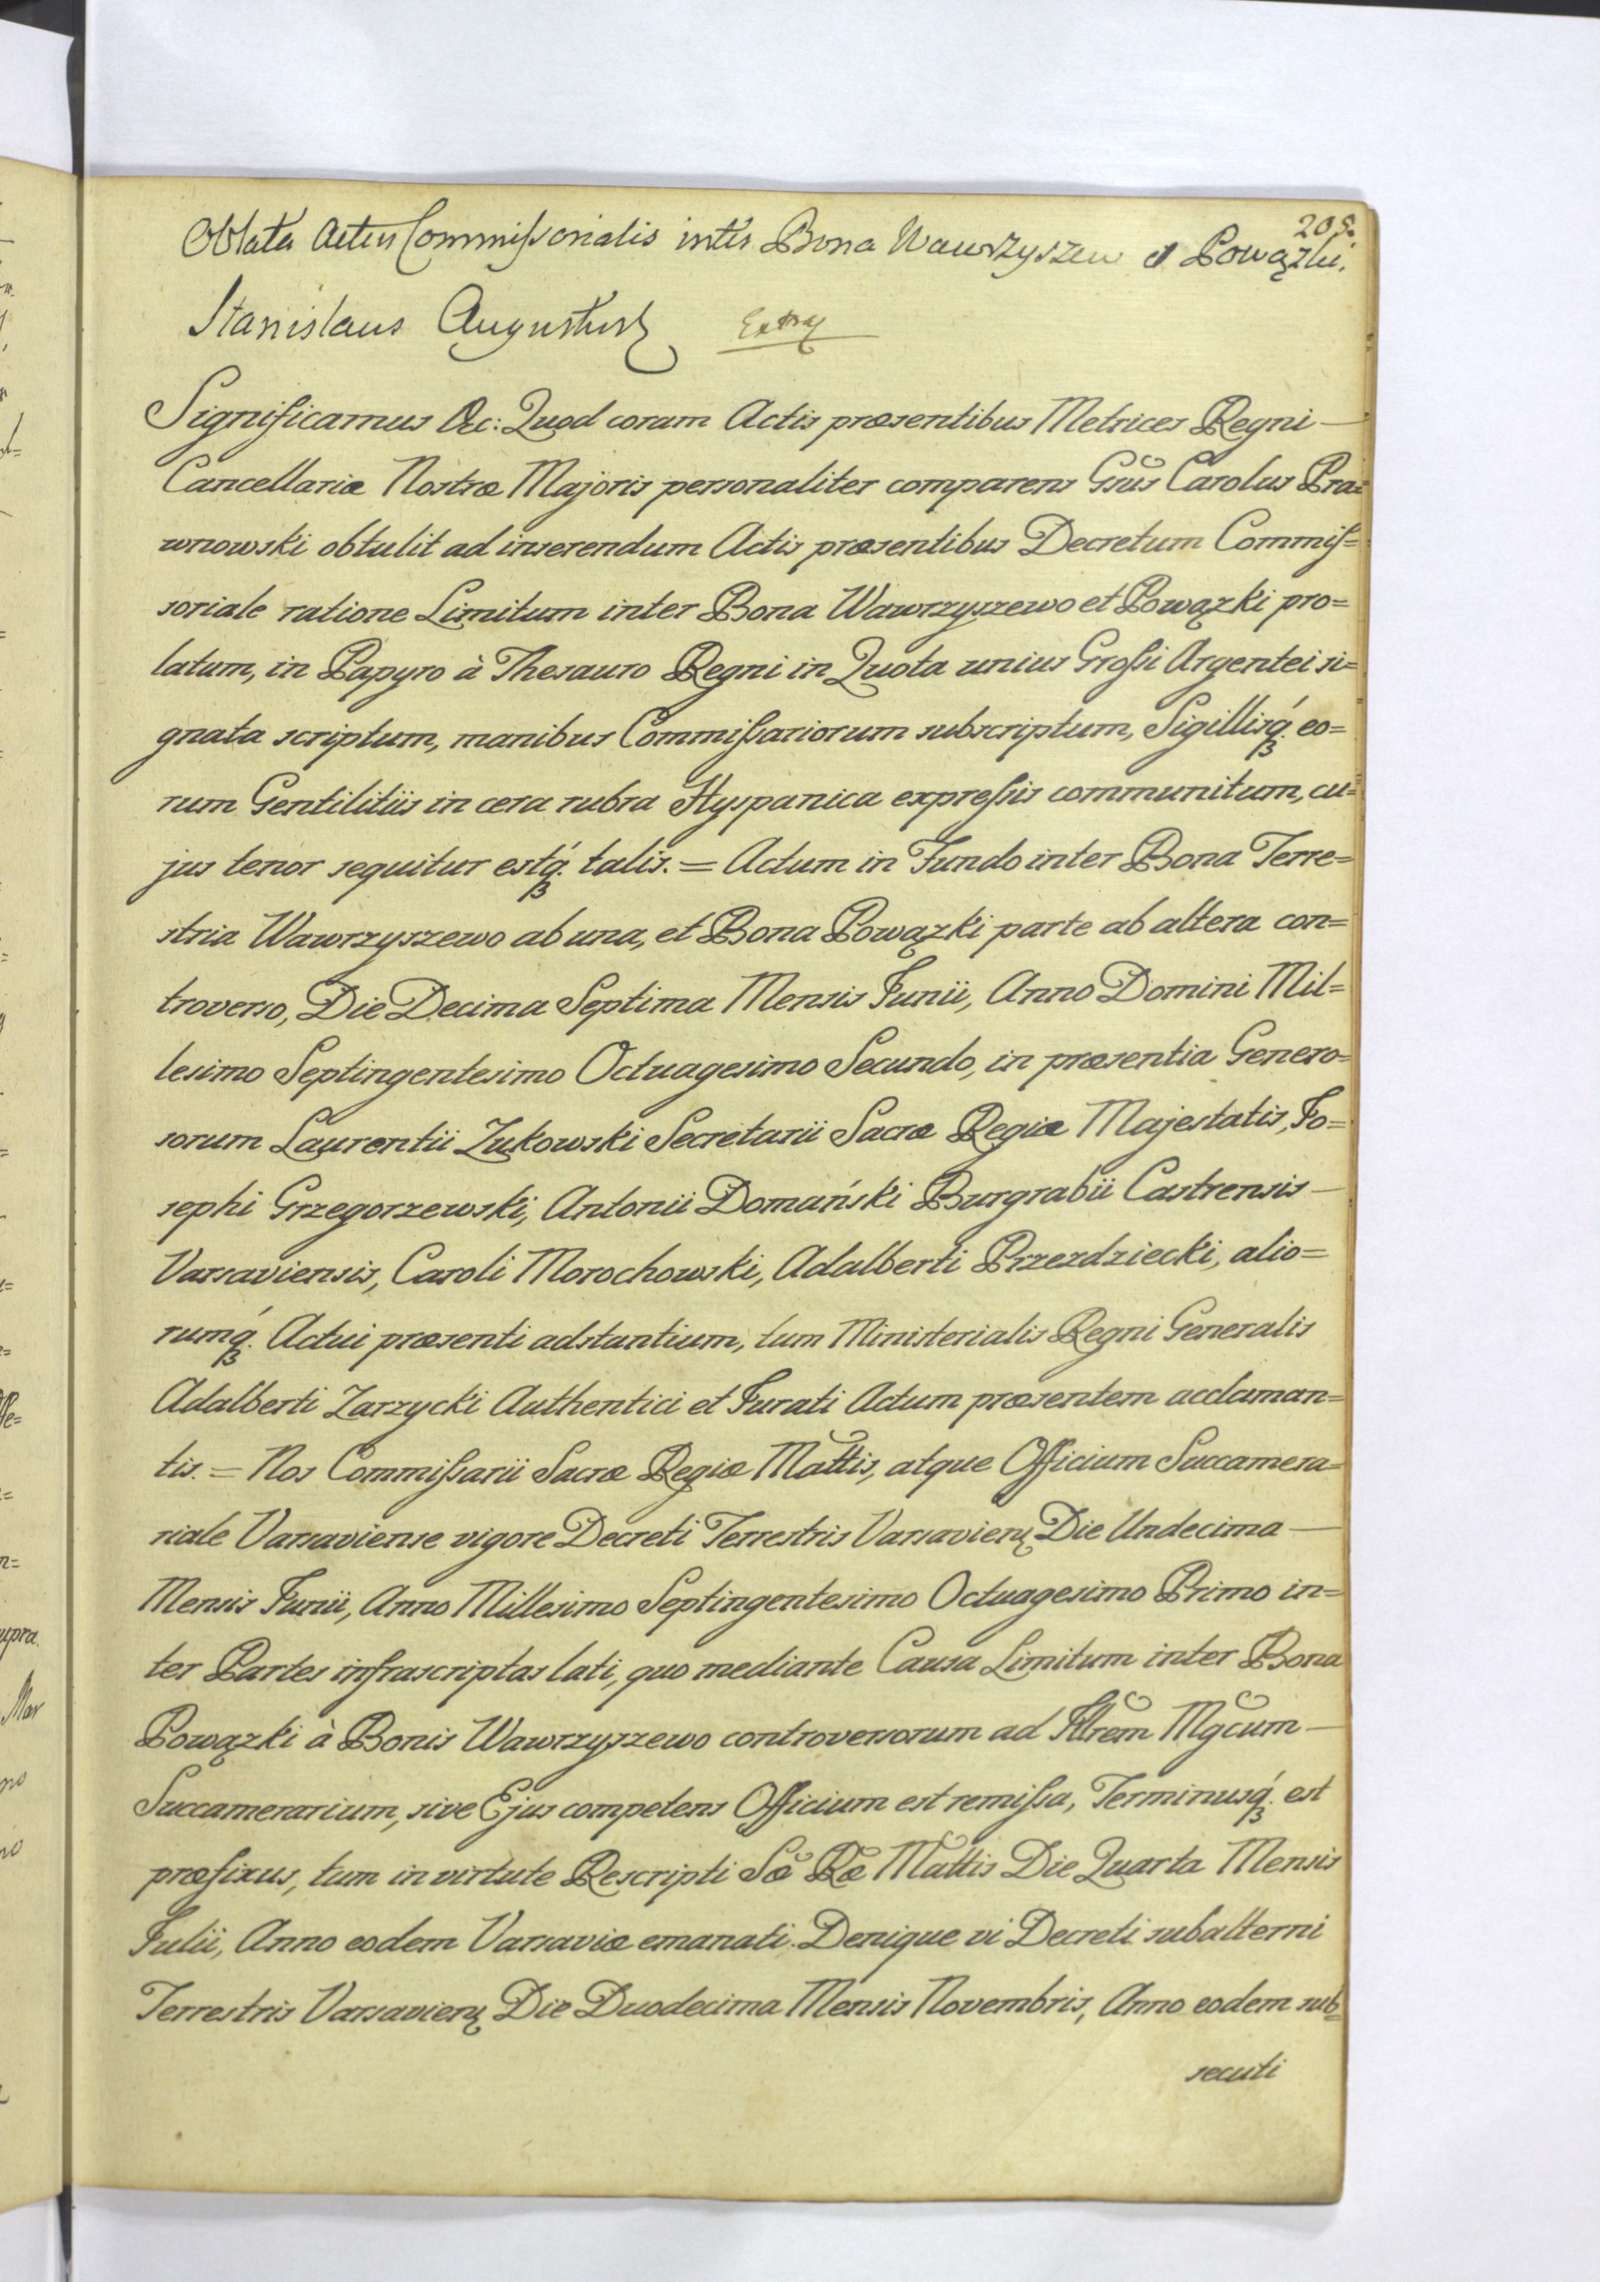 205.
Oblata Actus Commissorialis inter Bona Wawrzyszew et Powązki.
Stanislaus Augustus
Significamus &c: Quod coram Actis præsentibus Metrices Regni —
Cancellariæ Nostræ Majoris personaliter comparens Gsus Carolus Pra=
wnowski obtulit ad inserendum Actis præsentibus Decretum Commiss=
soriale ratione Limitum inter Bona Wawrzyszewo et Powązki pro=
latum, in Papyro à Thesauro Regni in Quota unius Grossi Argentei si=
gnata scriptum, manibus Commissariorum subscriptum, Sigillisq́ꝫ eo=
rum Gentilitiis in cera rubra Hyspanica expressis communitum, cu=
jus tenor sequitur estq́ꝫ talis. = Actum in Fundo inter Bona Terre=
stria Wawrzyszewo ab una, et Bona Powązki parte ab altera con=
troverso, Die Decima Septima Mensis Junii, Anno Domini Mil=
lesimo Septingentesimo Octuagesimo Secundo, in præsentia Genero=
sorum Laurentii Zukowski Secretarii Sacræ Regiæ Majestatis, Jo=
sephi Grzegorzewski, Antonii Domański Burgrabii Castrensis —
Varsaviensis, Caroli Morochowski, Adalberti Przezdziecki, alio=
rumq́ꝫ Actui præsenti adstantium, tum Ministerialis Regni Generalis
Adalberti Zarzycki Authentici et Jurati Actum præsentem acclaman=
tis. = Nos Commissarii Sacræ Regiæ Mattis, atque Officium Succamera=
riale Varsaviense vigore Decreti Terrestris Varsavien̄ Die Undecima —
Mensis Junii, Anno Millesimo Septingentesimo Octuagesimo Primo in=
ter Partes infrascriptas lati, quo mediante Causa Limitum inter Bona
Powązki à Bonis Wawrzyszewo controversorum ad Illrem Mgcum —
Succamerarium, sive Ejus competens Officium est remissa, Terminusq́ꝫ est
præfixus, tum in virtute Rescripti Sæ Ræ Mattis Die Quarta Mensis
Julii, Anno eodem Varsaviæ emanati. Denique vi Decreti subalterni
Terrestris Varsavien̄ Die Duodecima Mensis Novembris, Anno eodem sub=
secuti